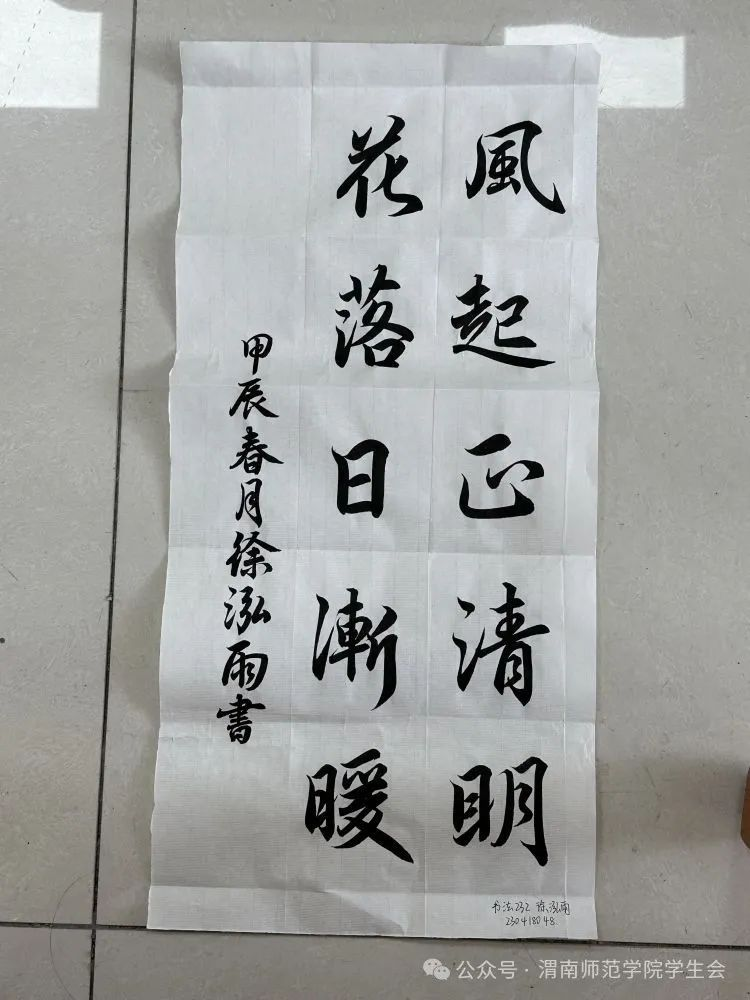 風起正清明
花落日漸暖
甲辰春月徐泓雨書
书法232 徐泓雨
230418048
公众号·渭南师范学院学生会